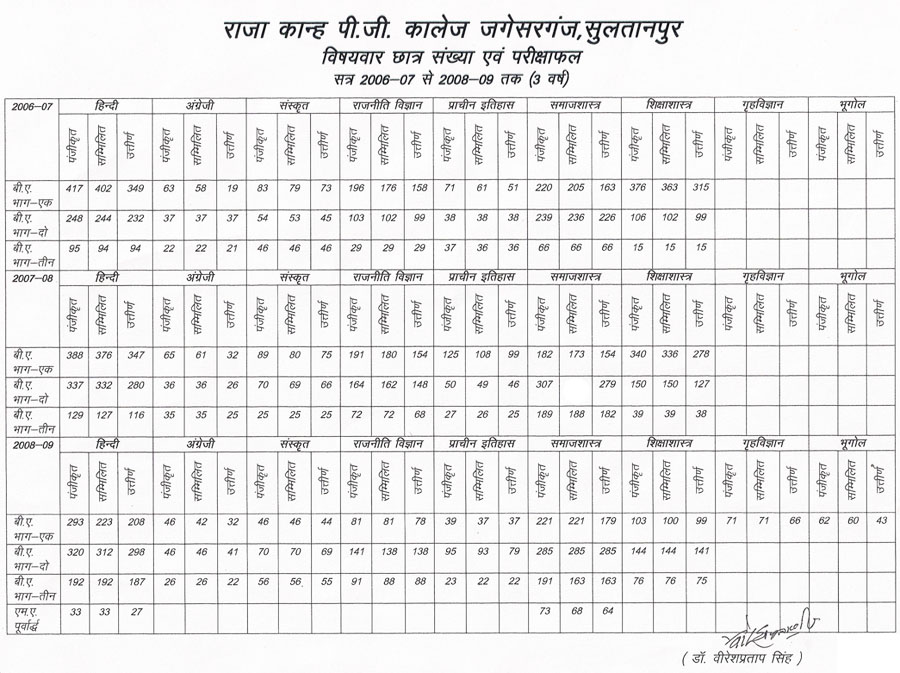 राजा कान्ह पी.जी. कालेज जगेसरगंज,सुलतानपुर
विषयवार छात्र संख्या एवं परीक्षाफल
सत्र 2006–07 से 2008–09 तक (3 वर्ष)
2006–07 हिन्दी अंग्रेजी संस्कृत राजनीति विज्ञान प्राचीन इतिहास समाजशास्त्र शिक्षाशास्त्र गृहविज्ञान भूगोल
पंजीकृत सम्मिलित उत्तीर्ण पंजीकृत सम्मिलित उत्तीर्ण पंजीकृत सम्मिलित उत्तीर्ण पंजीकृत सम्मिलित उत्तीर्ण पंजीकृत सम्मिलित उत्तीर्ण पंजीकृत सम्मिलित उत्तीर्ण पंजीकृत सम्मिलित उत्तीर्ण पंजीकृत सम्मिलित उत्तीर्ण पंजीकृत सम्मिलित उत्तीर्ण
बी.ए. भाग–एक 417 402 349 63 58 19 83 79 73 196 176 158 71 61 51 220 205 163 376 363 315
बी.ए. भाग–दो 248 244 232 37 37 37 54 53 45 103 102 99 38 38 38 239 236 226 106 102 99
बी.ए. भाग–तीन 95 94 94 22 22 21 46 46 46 29 29 29 37 36 36 66 66 66 15 15 15
2007–08 हिन्दी अंग्रेजी संस्कृत राजनीति विज्ञान प्राचीन इतिहास समाजशास्त्र शिक्षाशास्त्र गृहविज्ञान भूगोल
पंजीकृत सम्मिलित उत्तीर्ण पंजीकृत सम्मिलित उत्तीर्ण पंजीकृत सम्मिलित उत्तीर्ण पंजीकृत सम्मिलित उत्तीर्ण पंजीकृत सम्मिलित उत्तीर्ण पंजीकृत सम्मिलित उत्तीर्ण पंजीकृत सम्मिलित उत्तीर्ण पंजीकृत सम्मिलित उत्तीर्ण पंजीकृत सम्मिलित उत्तीर्ण
बी.ए. भाग–एक 388 376 347 65 61 32 89 80 75 191 180 154 125 108 99 182 173 154 340 336 278
बी.ए. भाग–दो 337 332 280 36 36 26 70 69 66 164 162 148 50 49 46 307 279 150 150 127
बी.ए. भाग–तीन 129 127 116 35 35 25 25 25 25 72 72 68 27 26 25 189 188 182 39 39 38
2008–09 हिन्दी अंग्रेजी संस्कृत राजनीति विज्ञान प्राचीन इतिहास समाजशास्त्र शिक्षाशास्त्र गृहविज्ञान भूगोल
पंजीकृत सम्मिलित उत्तीर्ण पंजीकृत सम्मिलित उत्तीर्ण पंजीकृत सम्मिलित उत्तीर्ण पंजीकृत सम्मिलित उत्तीर्ण पंजीकृत सम्मिलित उत्तीर्ण पंजीकृत सम्मिलित उत्तीर्ण पंजीकृत सम्मिलित उत्तीर्ण पंजीकृत सम्मिलित उत्तीर्ण पंजीकृत सम्मिलित उत्तीर्ण
बी.ए. भाग–एक 293 223 208 46 42 32 46 46 44 81 81 78 39 37 37 221 221 179 103 100 99 71 71 66 62 60 43
बी.ए. भाग–दो 320 312 298 46 46 41 70 70 69 141 138 138 95 93 79 285 285 285 144 144 141
बी.ए. भाग–तीन 192 192 187 26 26 22 56 56 55 91 88 88 23 22 22 191 163 163 76 76 75
एम.ए. पूर्वार्द्ध 33 33 27 73 68 64
( डॉ. वीरेशप्रताप सिंह )